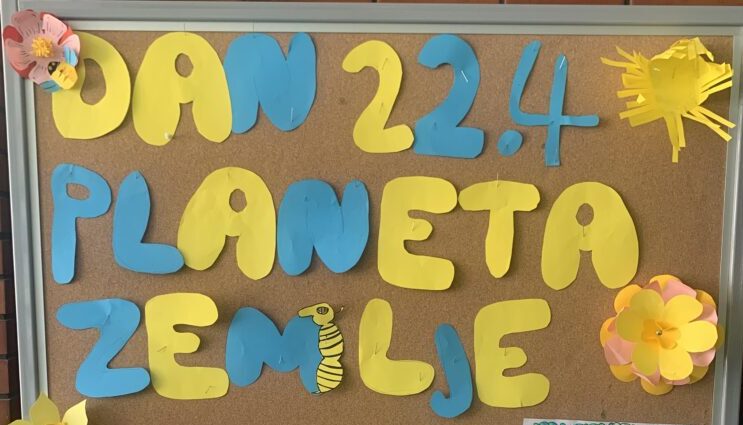 DAN 22.4
PLANETA
ZEMLJE